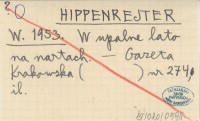 HIPPENREJTER
W. 1953. W upalne lato
na nartach. — Gazeta
Krakowska ( ) nr 274
il.